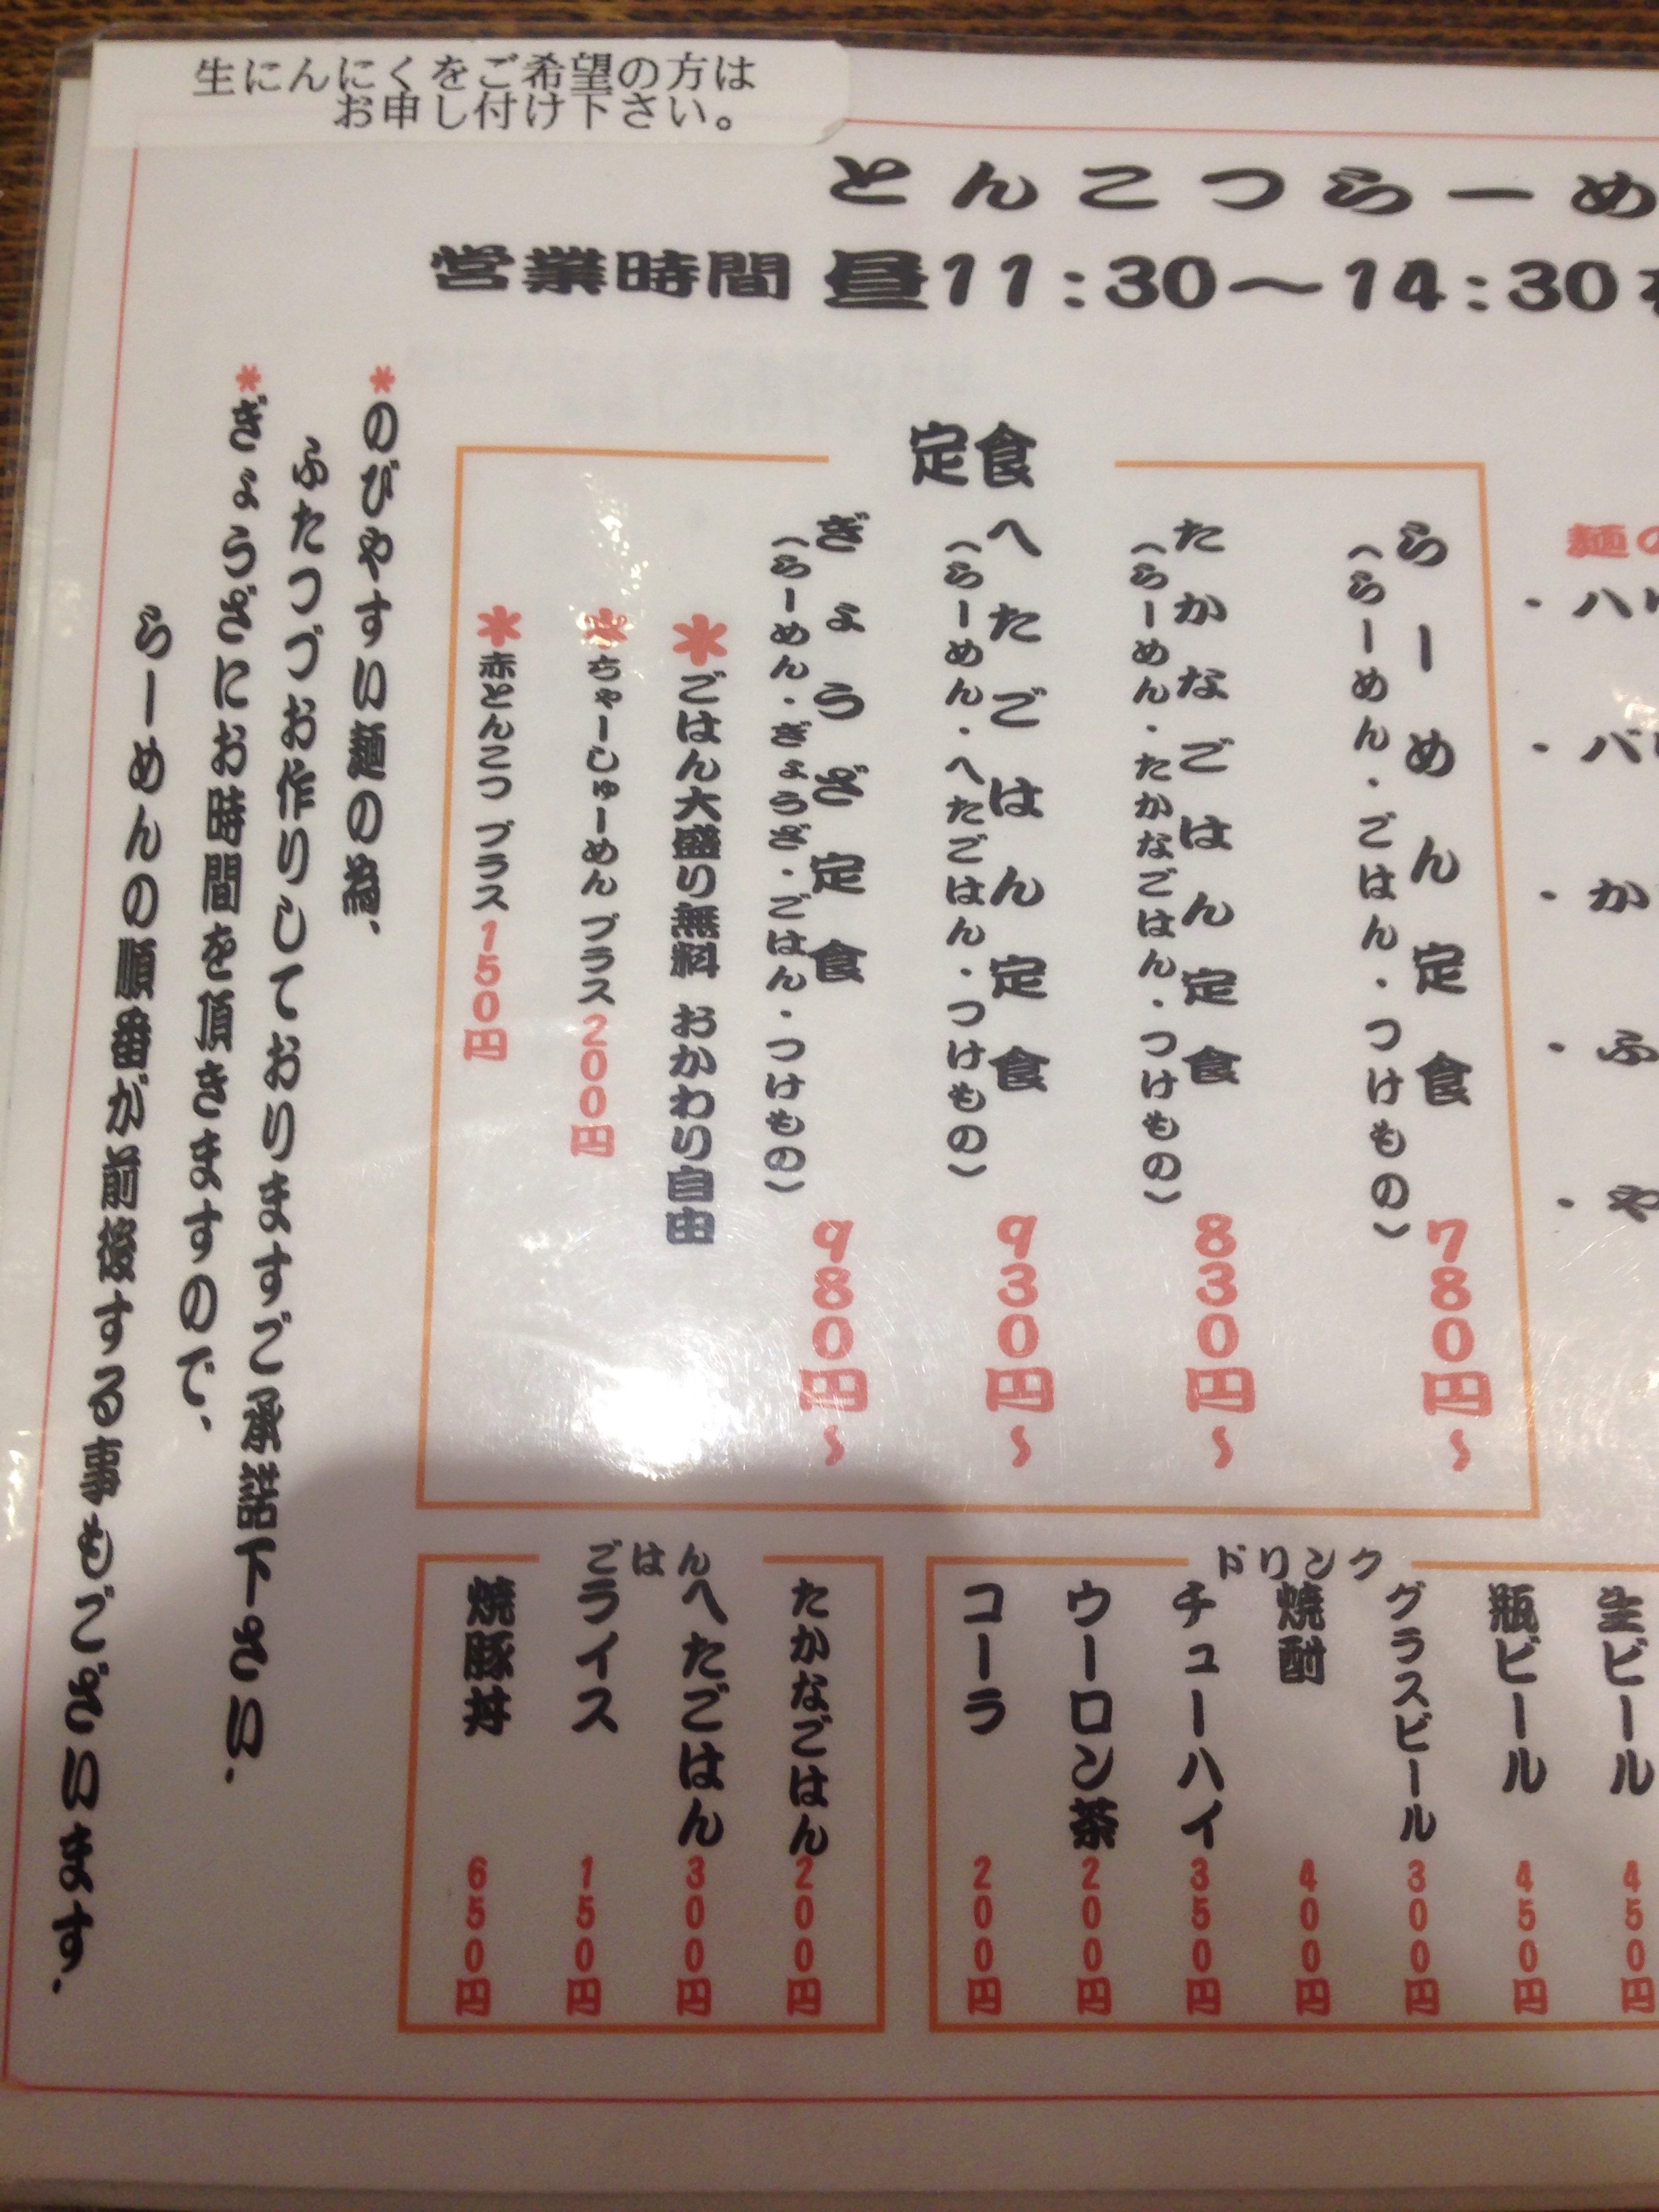 生にんにくをご希望の方は
お申し付け下さい。
とんこつらーめ
営業時間 昼11:30〜14:30
麺の
・ハリ
・バリ
・か
・ふ
・や
定食
らーめん定食
(らーめん・ごはん・つけもの)
780円〜
たかなごはん定食
(らーめん・たかなごはん・つけもの)
830円〜
へたごはん定食
(らーめん・へたごはん・つけもの)
930円〜
ぎょうざ定食
(らーめん・ぎょうざ・ごはん・つけもの)
980円〜
*ごはん大盛り無料 おかわり自由
*ちゃーしゅーめん プラス200円
*赤とんこつ プラス150円
*のびやすい麺の為、
ふたつづお作りしておりますご承諾下さい.
*ぎょうざにお時間を頂きますので、
らーめんの順番が前後する事もございます.
ドリンク
生ビール 450円
瓶ビール 450円
グラスビール 300円
焼酎 400円
チューハイ 350円
ウーロン茶 200円
コーラ 200円
ごはん
たかなごはん 200円
へたごはん 300円
ライス 150円
焼豚丼 650円